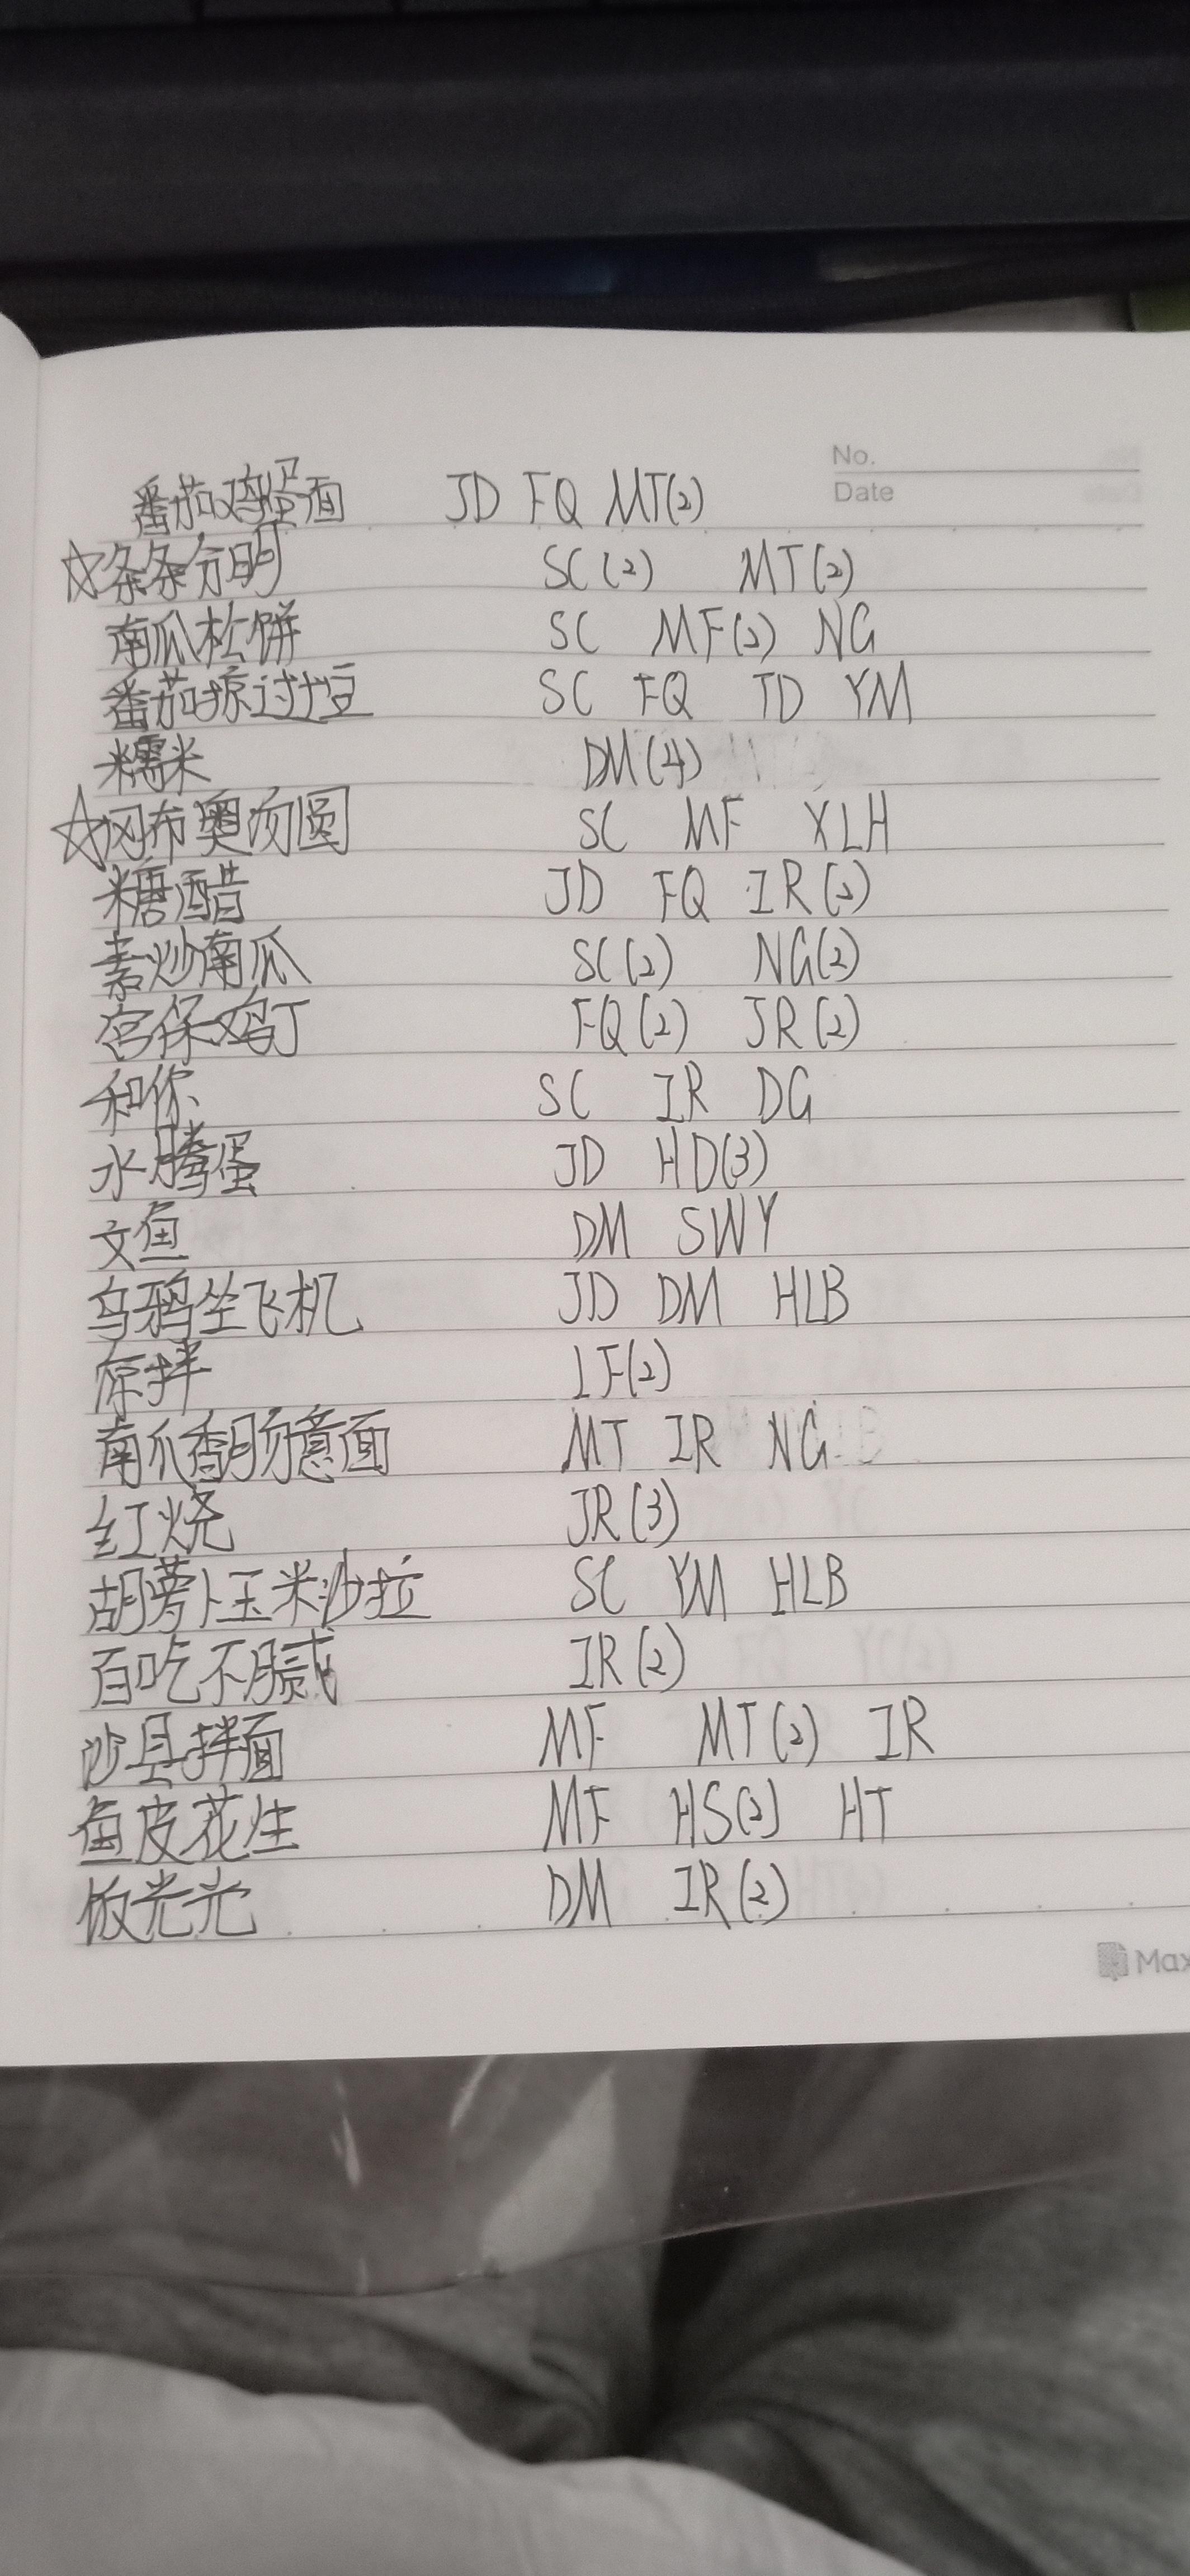 No.
Date
番茄鸡蛋面 JD FQ MT(2)
☆条条分明 SC(2) MT(2)
南瓜松饼 SC MF(2) NG
番茄掠过土豆 SC FQ TD YM
糯米 DM(4)
☆冈布奥汤圆 SC MF XLH
糖醋 JD FQ IR(2)
素炒南瓜 SC(2) NG(2)
宫保鸡丁 FQ(2) JR(2)
和你 SC IR DG
水腾蛋 JD HD(3)
文鱼 DM SWY
乌鸦坐飞机 JD DM HLB
凉拌 LF(2)
南瓜香肠意面 MT IR NG
红烧 JR(3)
胡萝卜玉米沙拉 SC YM HLB
百吃不腻 IR(2)
沙县拌面 MF MT(2) IR
鱼皮花生 MF HS(2) HT
饭光光 DM IR(2)
Max